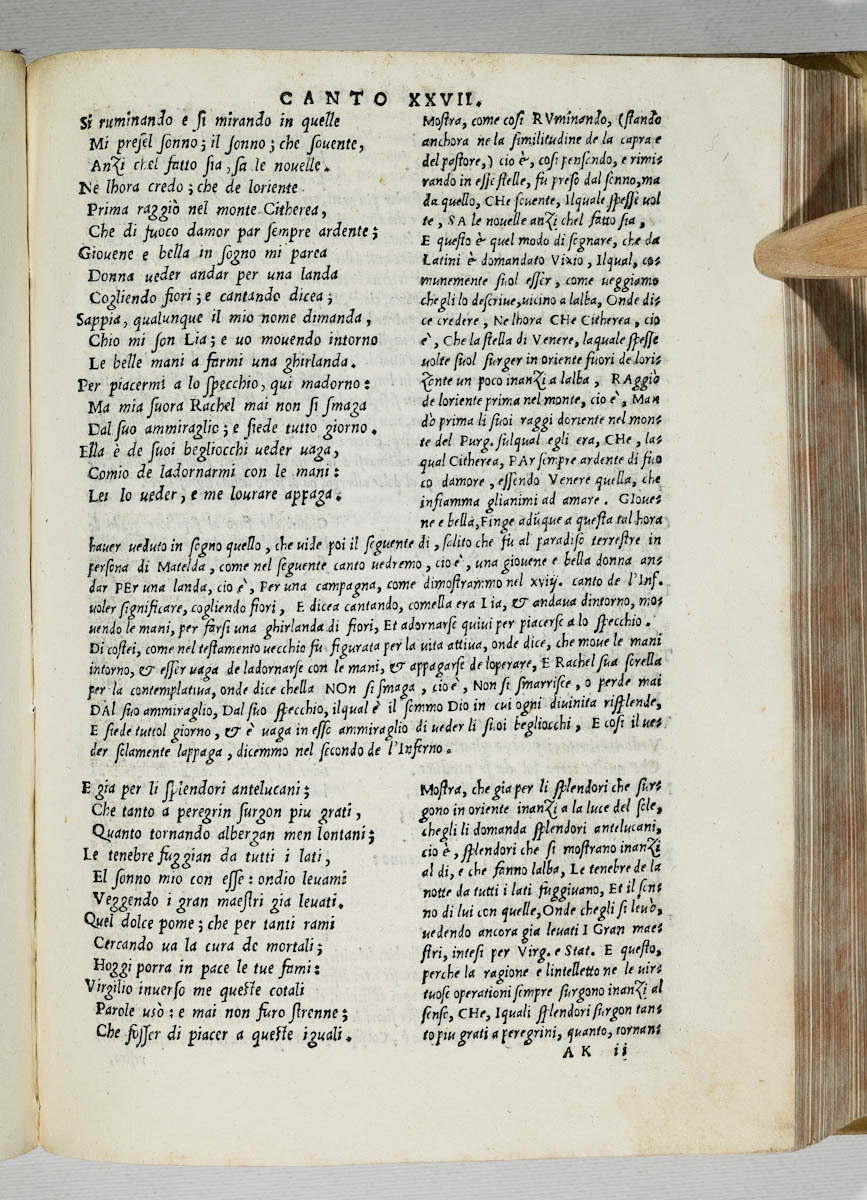 CANTO XXVII.
Si ruminando e si mirando in quelle
Mi presel sonno; il sonno; che souente,
Anzi chel fatto sia, sa le nouelle.
Ne lhora credo; che de loriente
Prima raggiò nel monte Citherea,
Che di fuoco damor par sempre ardente;
Giouene e bella in sogno mi parea
Donna ueder andar per una landa
Cogliendo fiori; e cantando dicea;
Sappia, qualunque il mio nome dimanda,
Chio mi son Lia; e uo mouendo intorno
Le belle mani a farmi una ghirlanda.
Per piacermi a lo specchio, qui madorno:
Ma mia suora Rachel mai non si smaga
Dal suo ammiraglio; e siede tutto giorno.
Ella è de suoi begliocchi ueder uaga,
Comio de ladornarmi con le mani:
Lei lo ueder, e me lourare appaga.
Mostra, come cosi RVminando, (stando
anchora ne la similitudine de la capra e
del pastore,) cio è, cosi pensendo, e rimi
rando in esse stelle, fu preso dal sonno, ma
da quello, CHe souente, Ilquale spesse uol
te, SA le nouelle anzi chel fatto sia,
E questo è quel modo di sognare, che da
Latini è domandato Vixio, Ilqual, co=
munemente suol esser, come ueggiamo
chegli lo descriue, uicino a lalba, Onde di=
ce credere, Ne lhora CHe Citherea, cio
è, Che la stella di Venere, laquale spesse
uolte suol surger in oriente fuori de lori=
zonte un poco inanzi a lalba, RAggiò
de loriente prima nel monte, cio è, Man
dò prima li suoi raggi doriente nel mon=
te del Purg. sulqual egli era, CHe, la=
qual Citherea, PAr sempre ardente di fuo
co damore, essendo Venere quella, che
infiamma glianimi ad amare. GIoue=
ne e bella, Finge adũque a questa tal hora
hauer ueduto in sogno quello, che uide poi il seguente di, salito che fu al paradiso terrestre in
persona di Matelda, come nel seguente canto uedremo, cio è, una giouene e bella donna an=
dar PEr una landa, cio è, Per una campagna, come dimostrammo nel xvij. canto de l'Inf.
uoler significare, cogliendo fiori, E dicea cantando, comella era Lia, & andaua dintorno, mo=
uendo le mani, per farsi una ghirlanda di fiori, Et adornarse quiui per piacerse a lo specchio.
Di costei, come nel testamento uecchio fu figurata per la uita attiua, onde dice, che moue le mani
intorno, & esser uaga de ladornarse con le mani, & appagarse de loperare, E Rachel sua sorella
per la contemplatiua, onde dice chella NOn si smaga, cio è, Non si smarrisce, o perde mai
DAl suo ammiraglio, Dal suo specchio, ilqual è il sommo Dio in cui ogni diuinita risplende,
E siede tuttol giorno, & è uaga in esso ammiraglio di ueder li suoi begliocchi, E cosi il ue=
der solamente lappaga, dicemmo nel secondo de l'Inferno.
E gia per li splendori antelucani;
Che tanto a peregrin surgon piu grati,
Quanto tornando albergan men lontani;
Le tenebre fuggian da tutti i lati,
El sonno mio con esse: ondio leuami
Veggendo i gran maestri gia leuati.
Quel dolce pome; che per tanti rami
Cercando ua la cura de mortali;
Hoggi porra in pace le tue fami:
Virgilio inuerso me queste cotali
Parole usò: e mai non furo strenne;
Che fosser di piacer a queste iguali.
Mostra, che gia per li splendori che sur=
gono in oriente inanzi a la luce del sole,
chegli li domanda splendori antelucani,
cio è, splendori che si mostrano inanzi
al di, e che fanno lalba, Le tenebre de la
notte da tutti i lati fuggiuano, Et il son=
no di lui con quelle, Onde chegli si leuò,
uedendo ancora gia leuati I Gran mae=
stri, intesi per Virg. e Stat. E questo,
perche la ragione e lintelletto ne le uir=
tuose operationi sempre surgono inanzi al
senso, CHe, Iquali splendori surgon tan=
to piu grati a peregrini, quanto, tornan=
AK ii